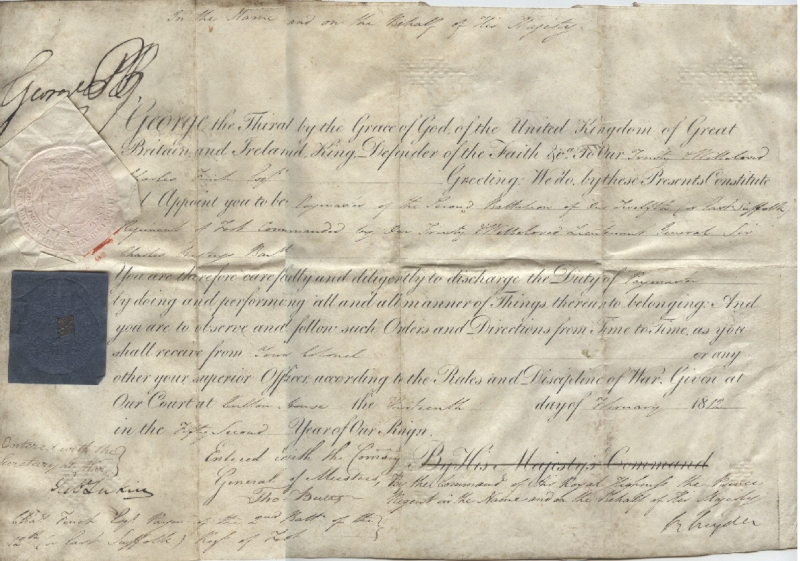 In the Name and on the Behalf of His Majesty.
George P R
George the Third by the Grace of God, of the United Kingdom of Great
Britain and Ireland King, Defender of the Faith &c. To Our Trusty & Wellbeloved
Charles Finch Esqr. Greeting: We do by these Presents Constitute
& Appoint you to be Paymaster of the Second Battalion of Our Twelfth or East Suffolk
Regiment of Foot Commanded by Our Trusty & Wellbeloved Lieutenant General Sir
Charles Bart.
You are therefore carefully and diligently to discharge the Duty of Paymaster
by doing and performing all and all manner of Things thereunto belonging: And
you are to observe and follow such Orders and Directions from Time to Time, as you
shall receive from Your Colonel or any
other your superior Officer, according to the Rules and Discipline of War. Given at
Our Court at Carlton House the day of February 1812
in the Fifty Second Year of Our Reign.
By His Majesty's Command
By the Command of His Royal Highness the Prince
Regent in the Name and on the Behalf of His Majesty
R Ryder
Entered with the
Secretary at War
Entered with the Commy.
General of Musters
Thos. Butts
Chas. Finch Esqr. Paymr. of the 2nd Batt. of the
12th (or East Suffolk) Regt. of Foot